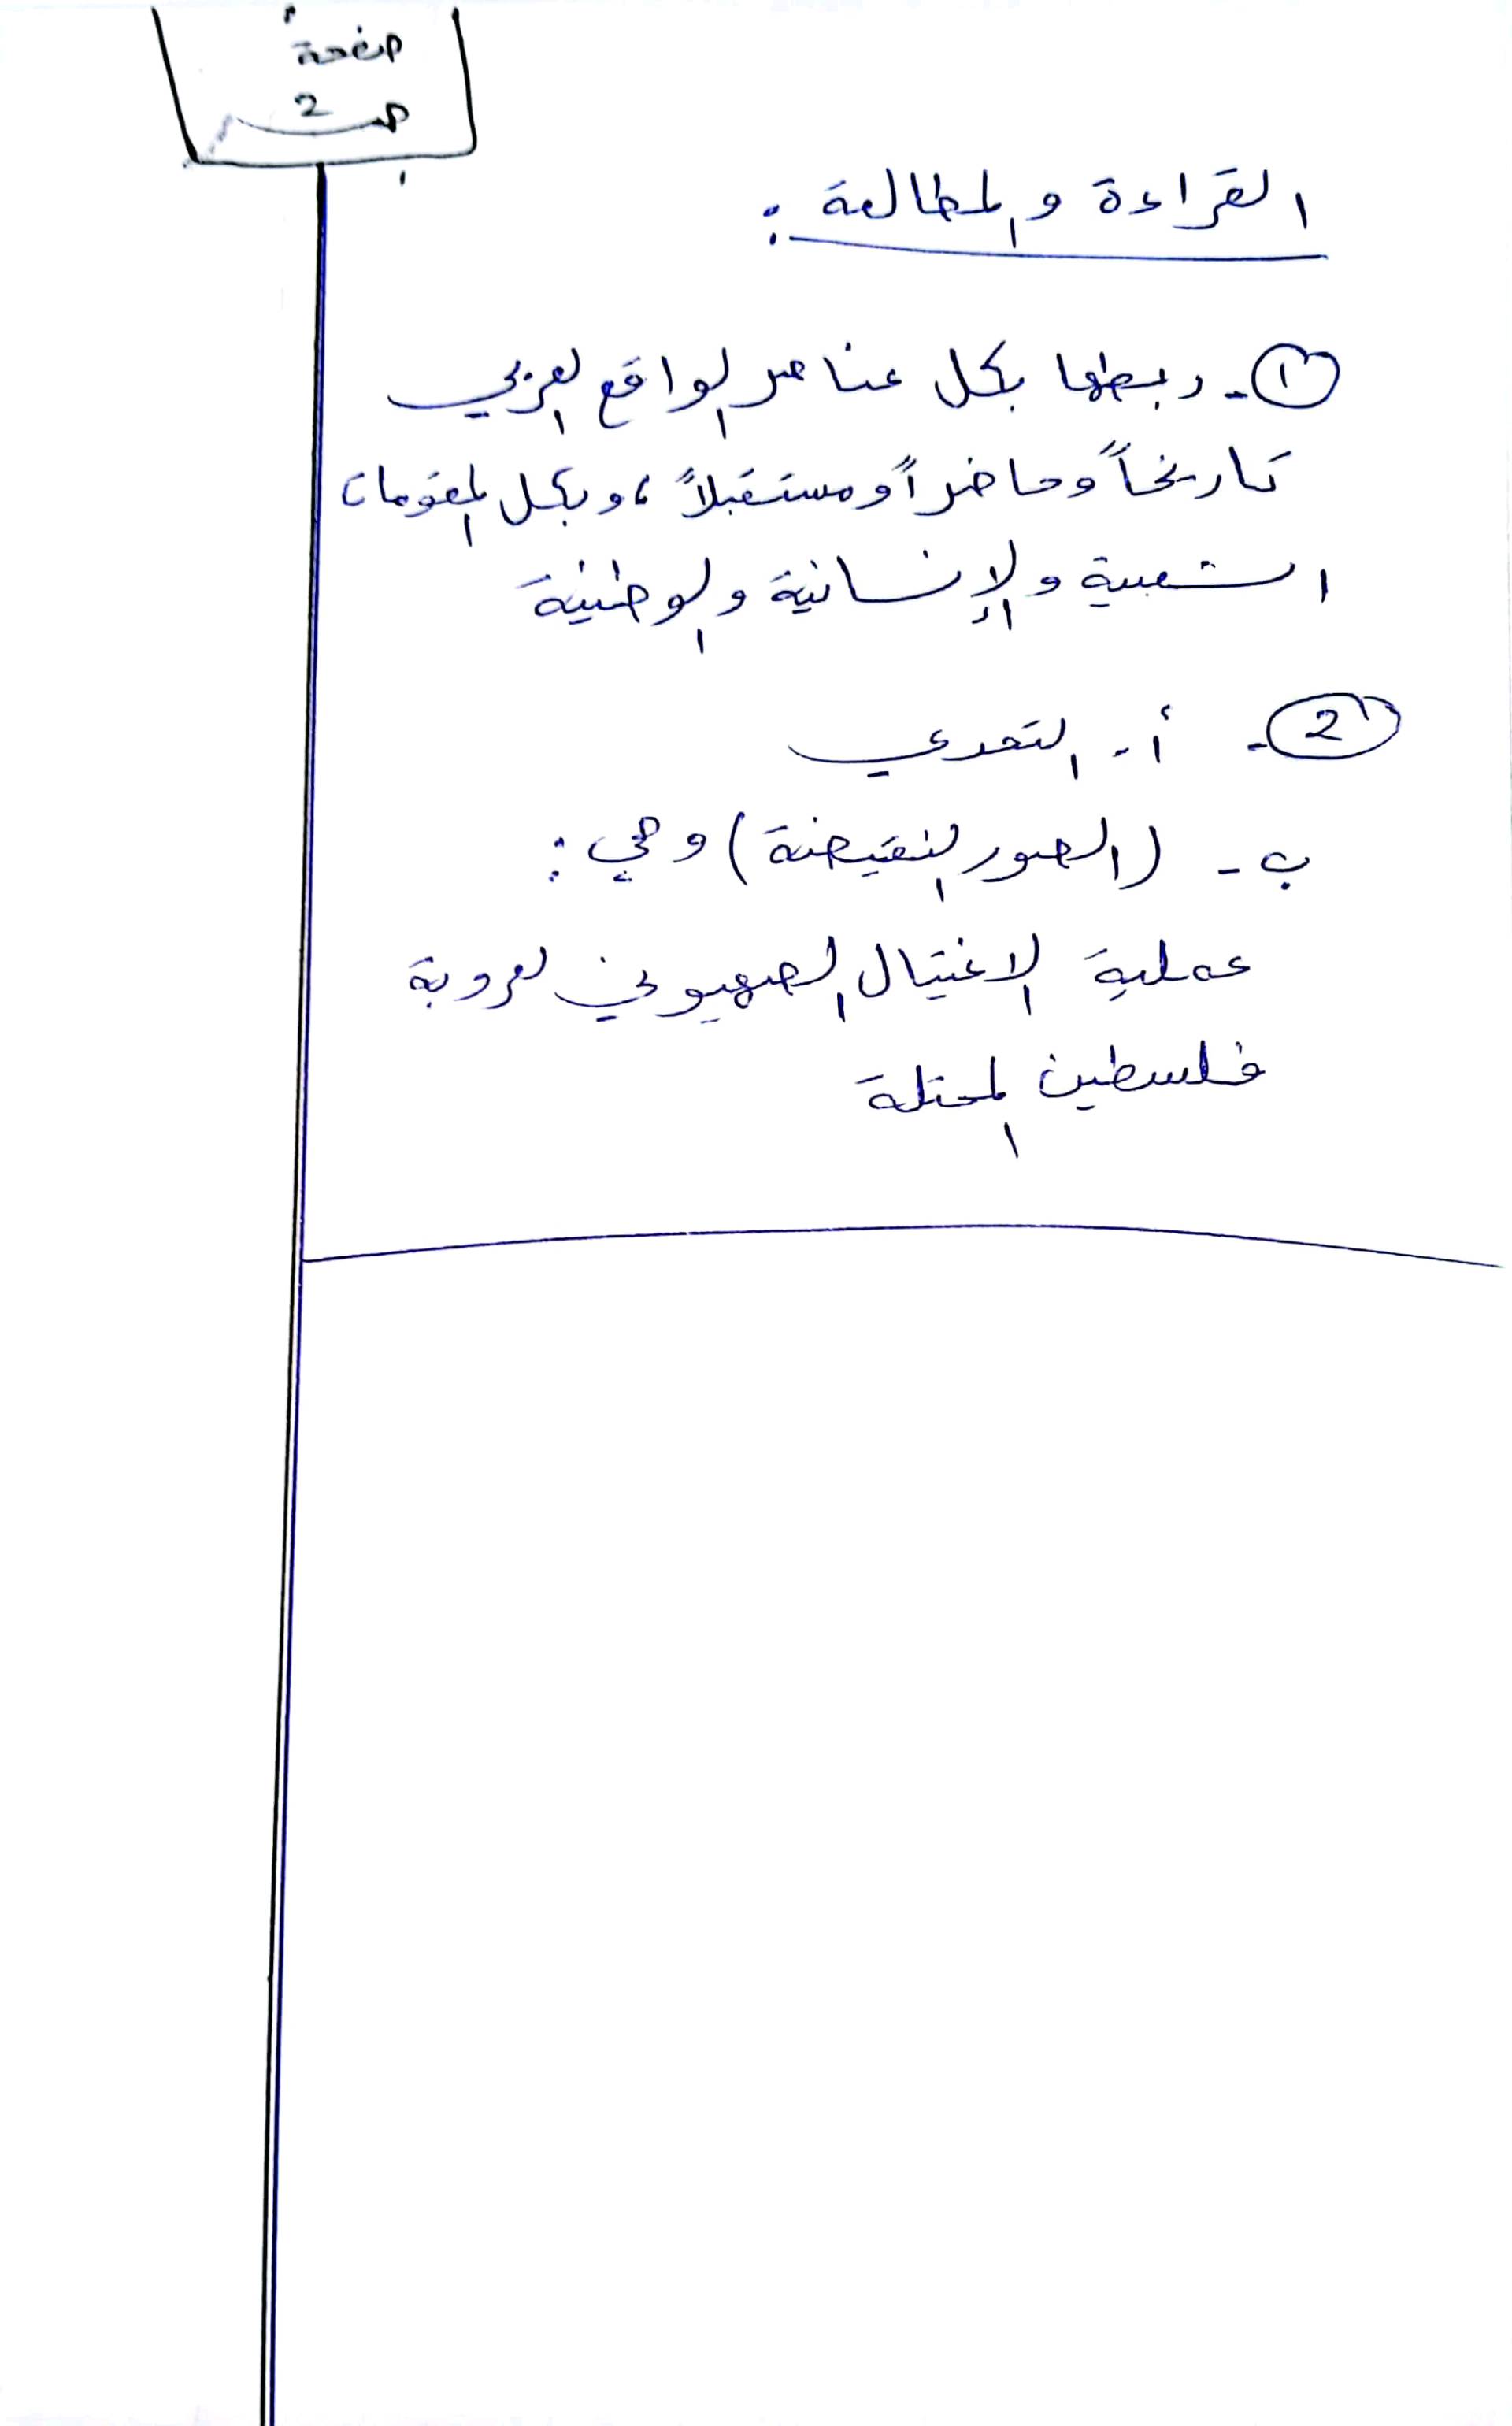 صفحة
ص 2
القراءة والمطالعة :
1 - ربطها بكل عناصر الواقع العربي
تاريخاً وحاضراً ومستقبلاً ، وبكل المقومات
الشعبية والإنسانية والوطنية
2 - أ - التحدي
ب - (الصور النقيضة) وهي :
عملية الاغتيال الصهيوني لعروبة
فلسطين المحتلة